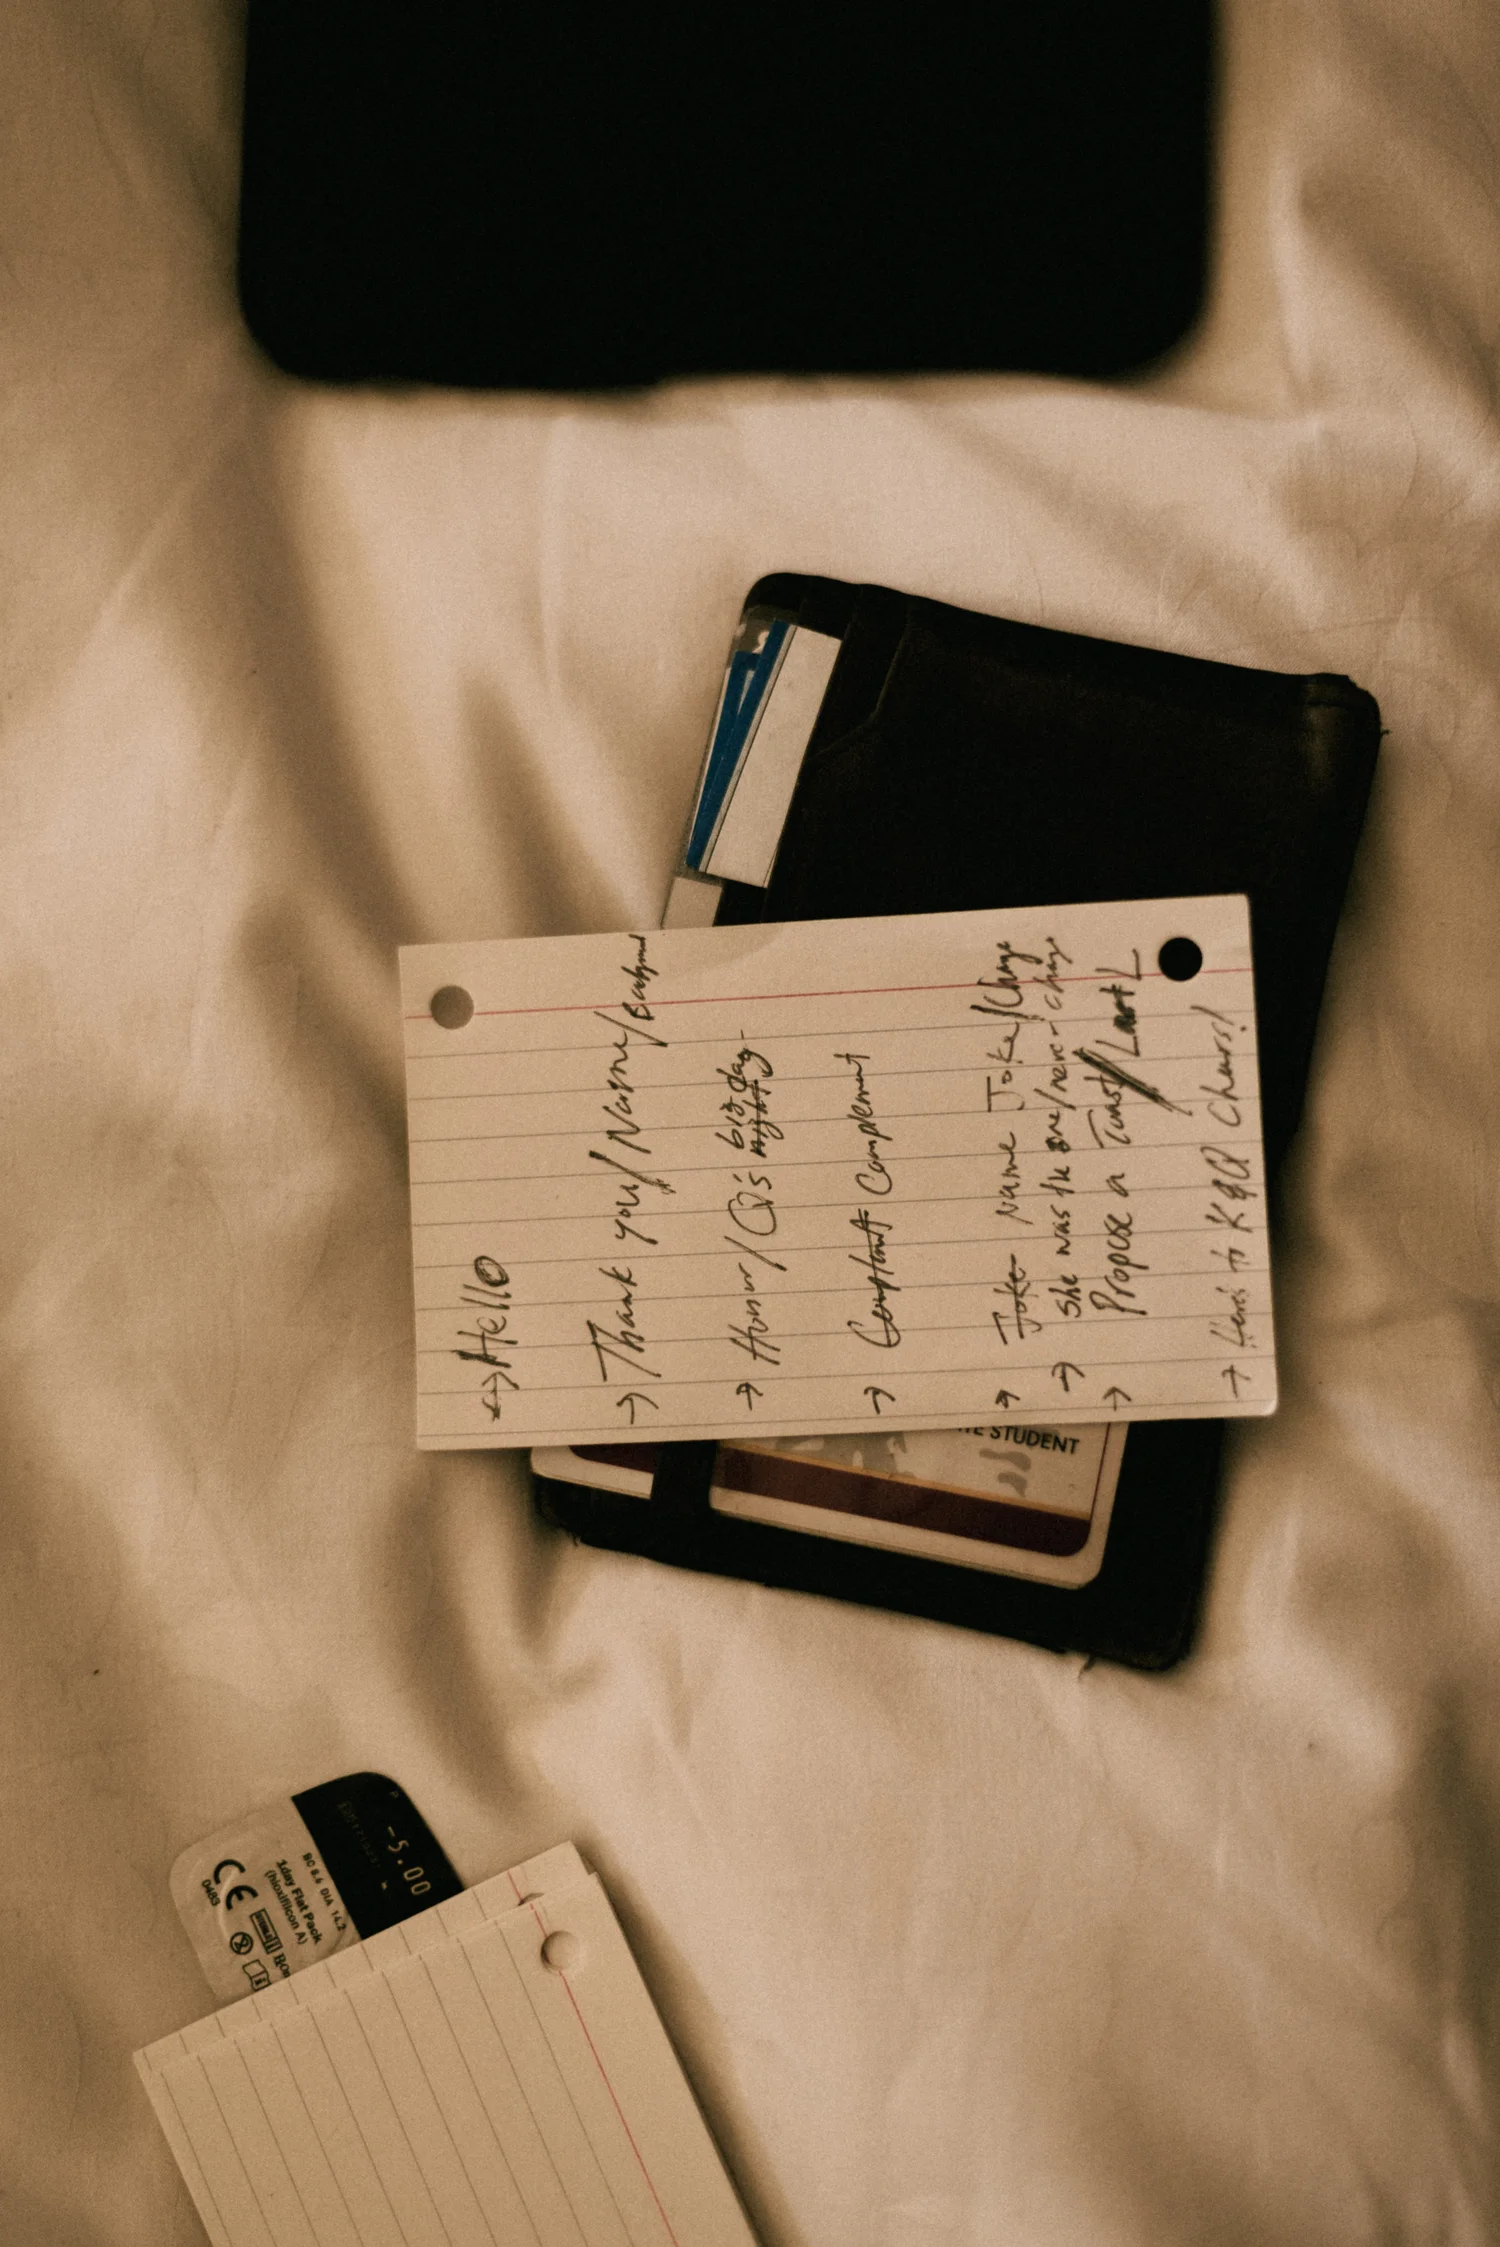 ↔ Hello
→ Thank you / Name /
→ Honor / Q's big day night
→ Compliment Complement
→ Joke Name Joke / Change
→ She was the one / never-change
→ Propose a Toast / Last L
→ Here's to K&Q Cheers!
STUDENT
-5.00
BC 8.6 DIA 14.2
1day Flat Pack
(hioxifilcon A)
CE
0483